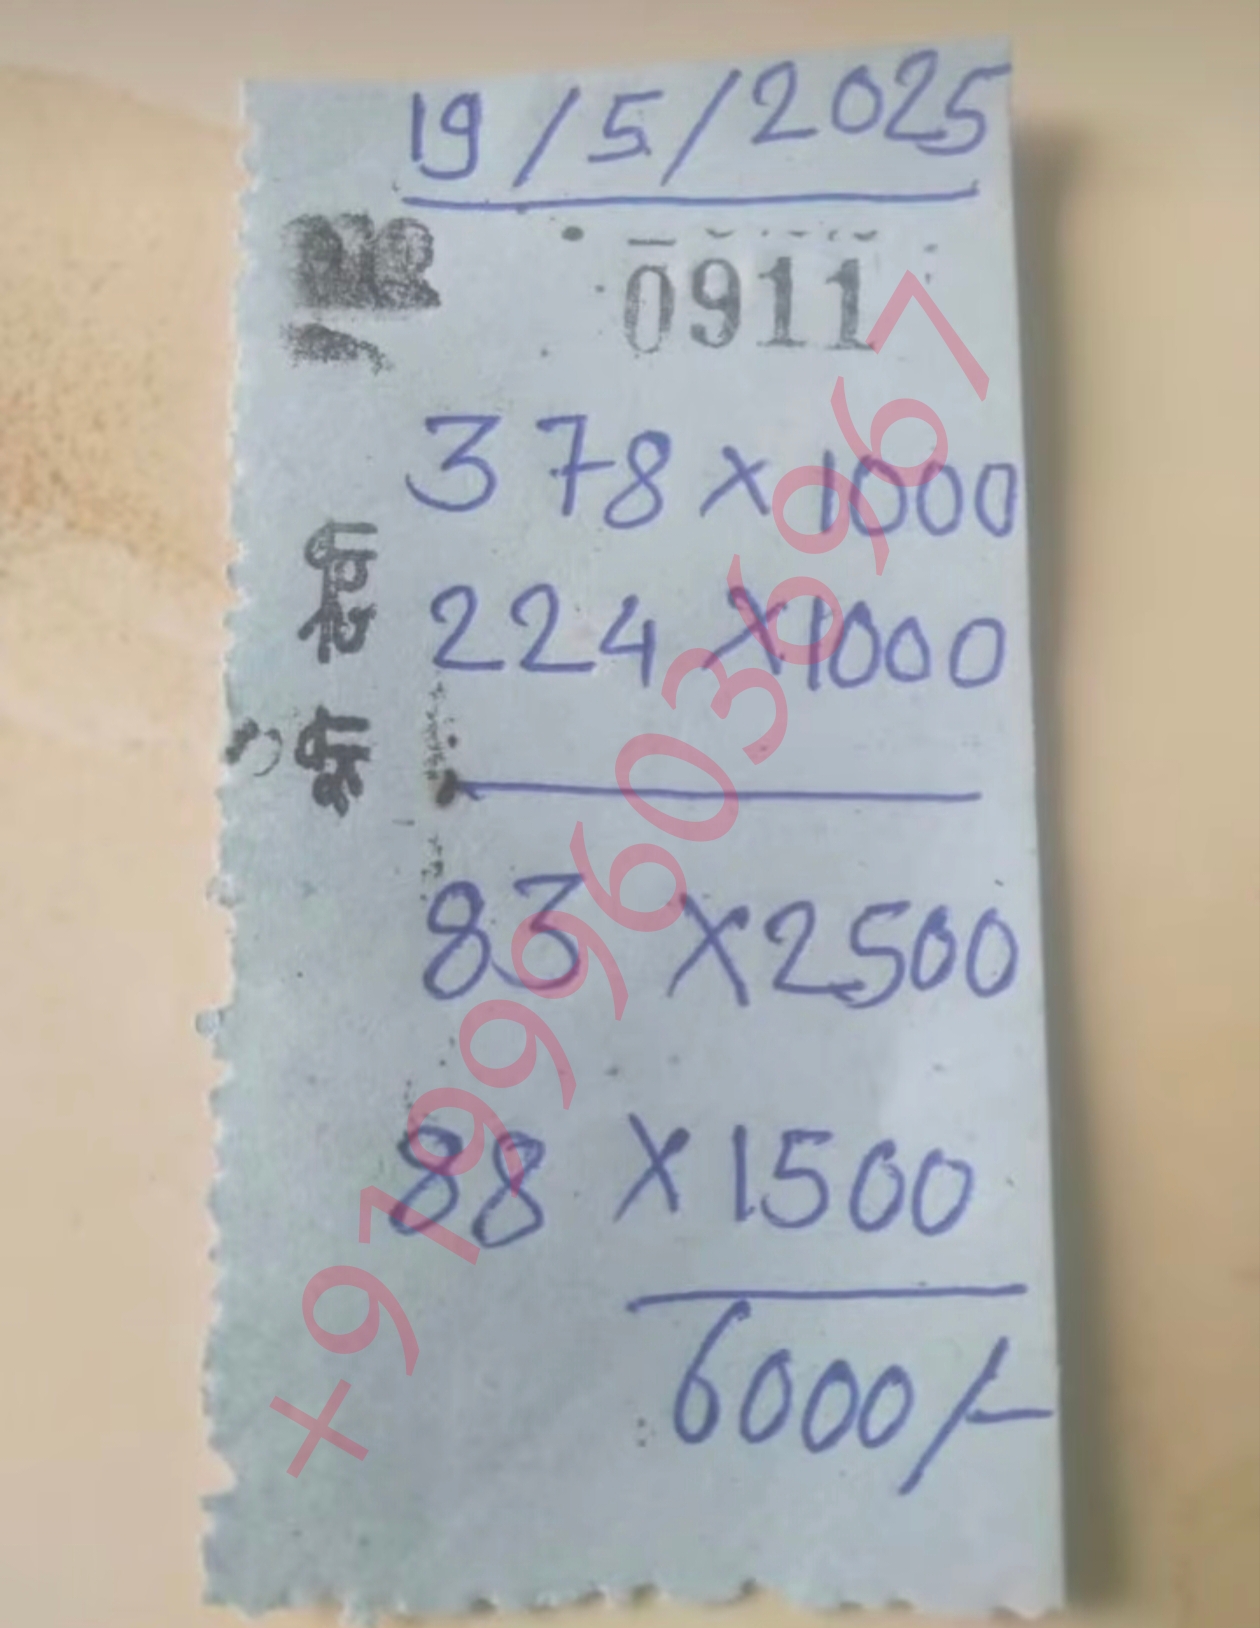 19/5/2025
0911
378 x 1000
224 x 1000
83 x 2500
88 x 1500
6000/-
श्री देवी
+919996036967